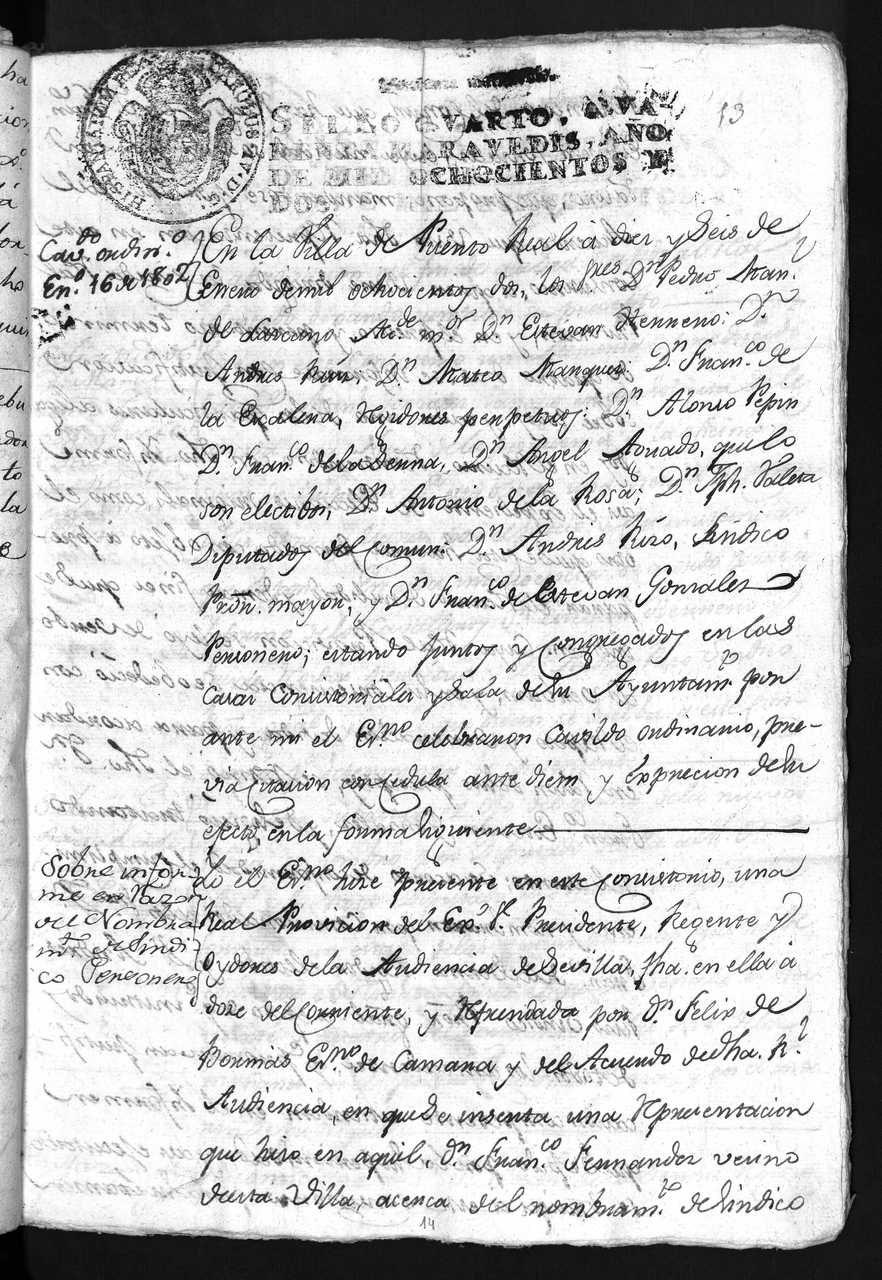 13
SELLO QVARTO, QVA-
RENTA MARAVEDIS, AÑO
DE MIL OCHOCIENTOS Y
DOS.
Cav.do ordin.o
En.o 16 de 1802
En la Villa de Puerto Real á diez y Seis de
Enero de mil ochocientos dos, los Sres. Dn. Pedro Man.l
de Alc.de m.or Dn. Estevan Herrero: D.n
Andres Ruiz, D.n Mateo Marquez: D.n Fran.co de
la Escalera, Rejidores perpetuos: D.n Alonso Pepin
D.n Fran.co de la Serna, D.n Angel Aguado, que lo
son electibos; D.n Antonio de la Rosa; D.n Jph. Valera
Diputados del Comun: D.n Andres Rizo, Sindico
Pror. mayor, y D.n Fran.co de Estevan Gonzales
Personero; estando juntos y Congregados en las
Casas Consistoriales y Sala de su Ayuntam.to por
ante mi el Es.no celebraron Cavildo ordinario, pre-
via Citacion con Cedula ante diem y Exprecion de su
efecto en la forma Siguiente
Sobre infor-
me en razon
del Nombra
m.to de Sindi
co Personero
Yo el Es.no hize presente en este Consistorio, una
Real Provicion del Ex.mo S.r Presidente, Regente y
Oydores de la Audiencia de Sevilla, fha. en ella á
doze del Corriente, y Refrendada por D.n Felix de
Bormas Es.no de Camara y del Acuerdo de dha. R.l
Audiencia, en que Se inserta una Representacion
que hizo en aquel, D.n Fran.co Fernandez vecino
de esta Villa, acerca del nombram.to de Sindico
14